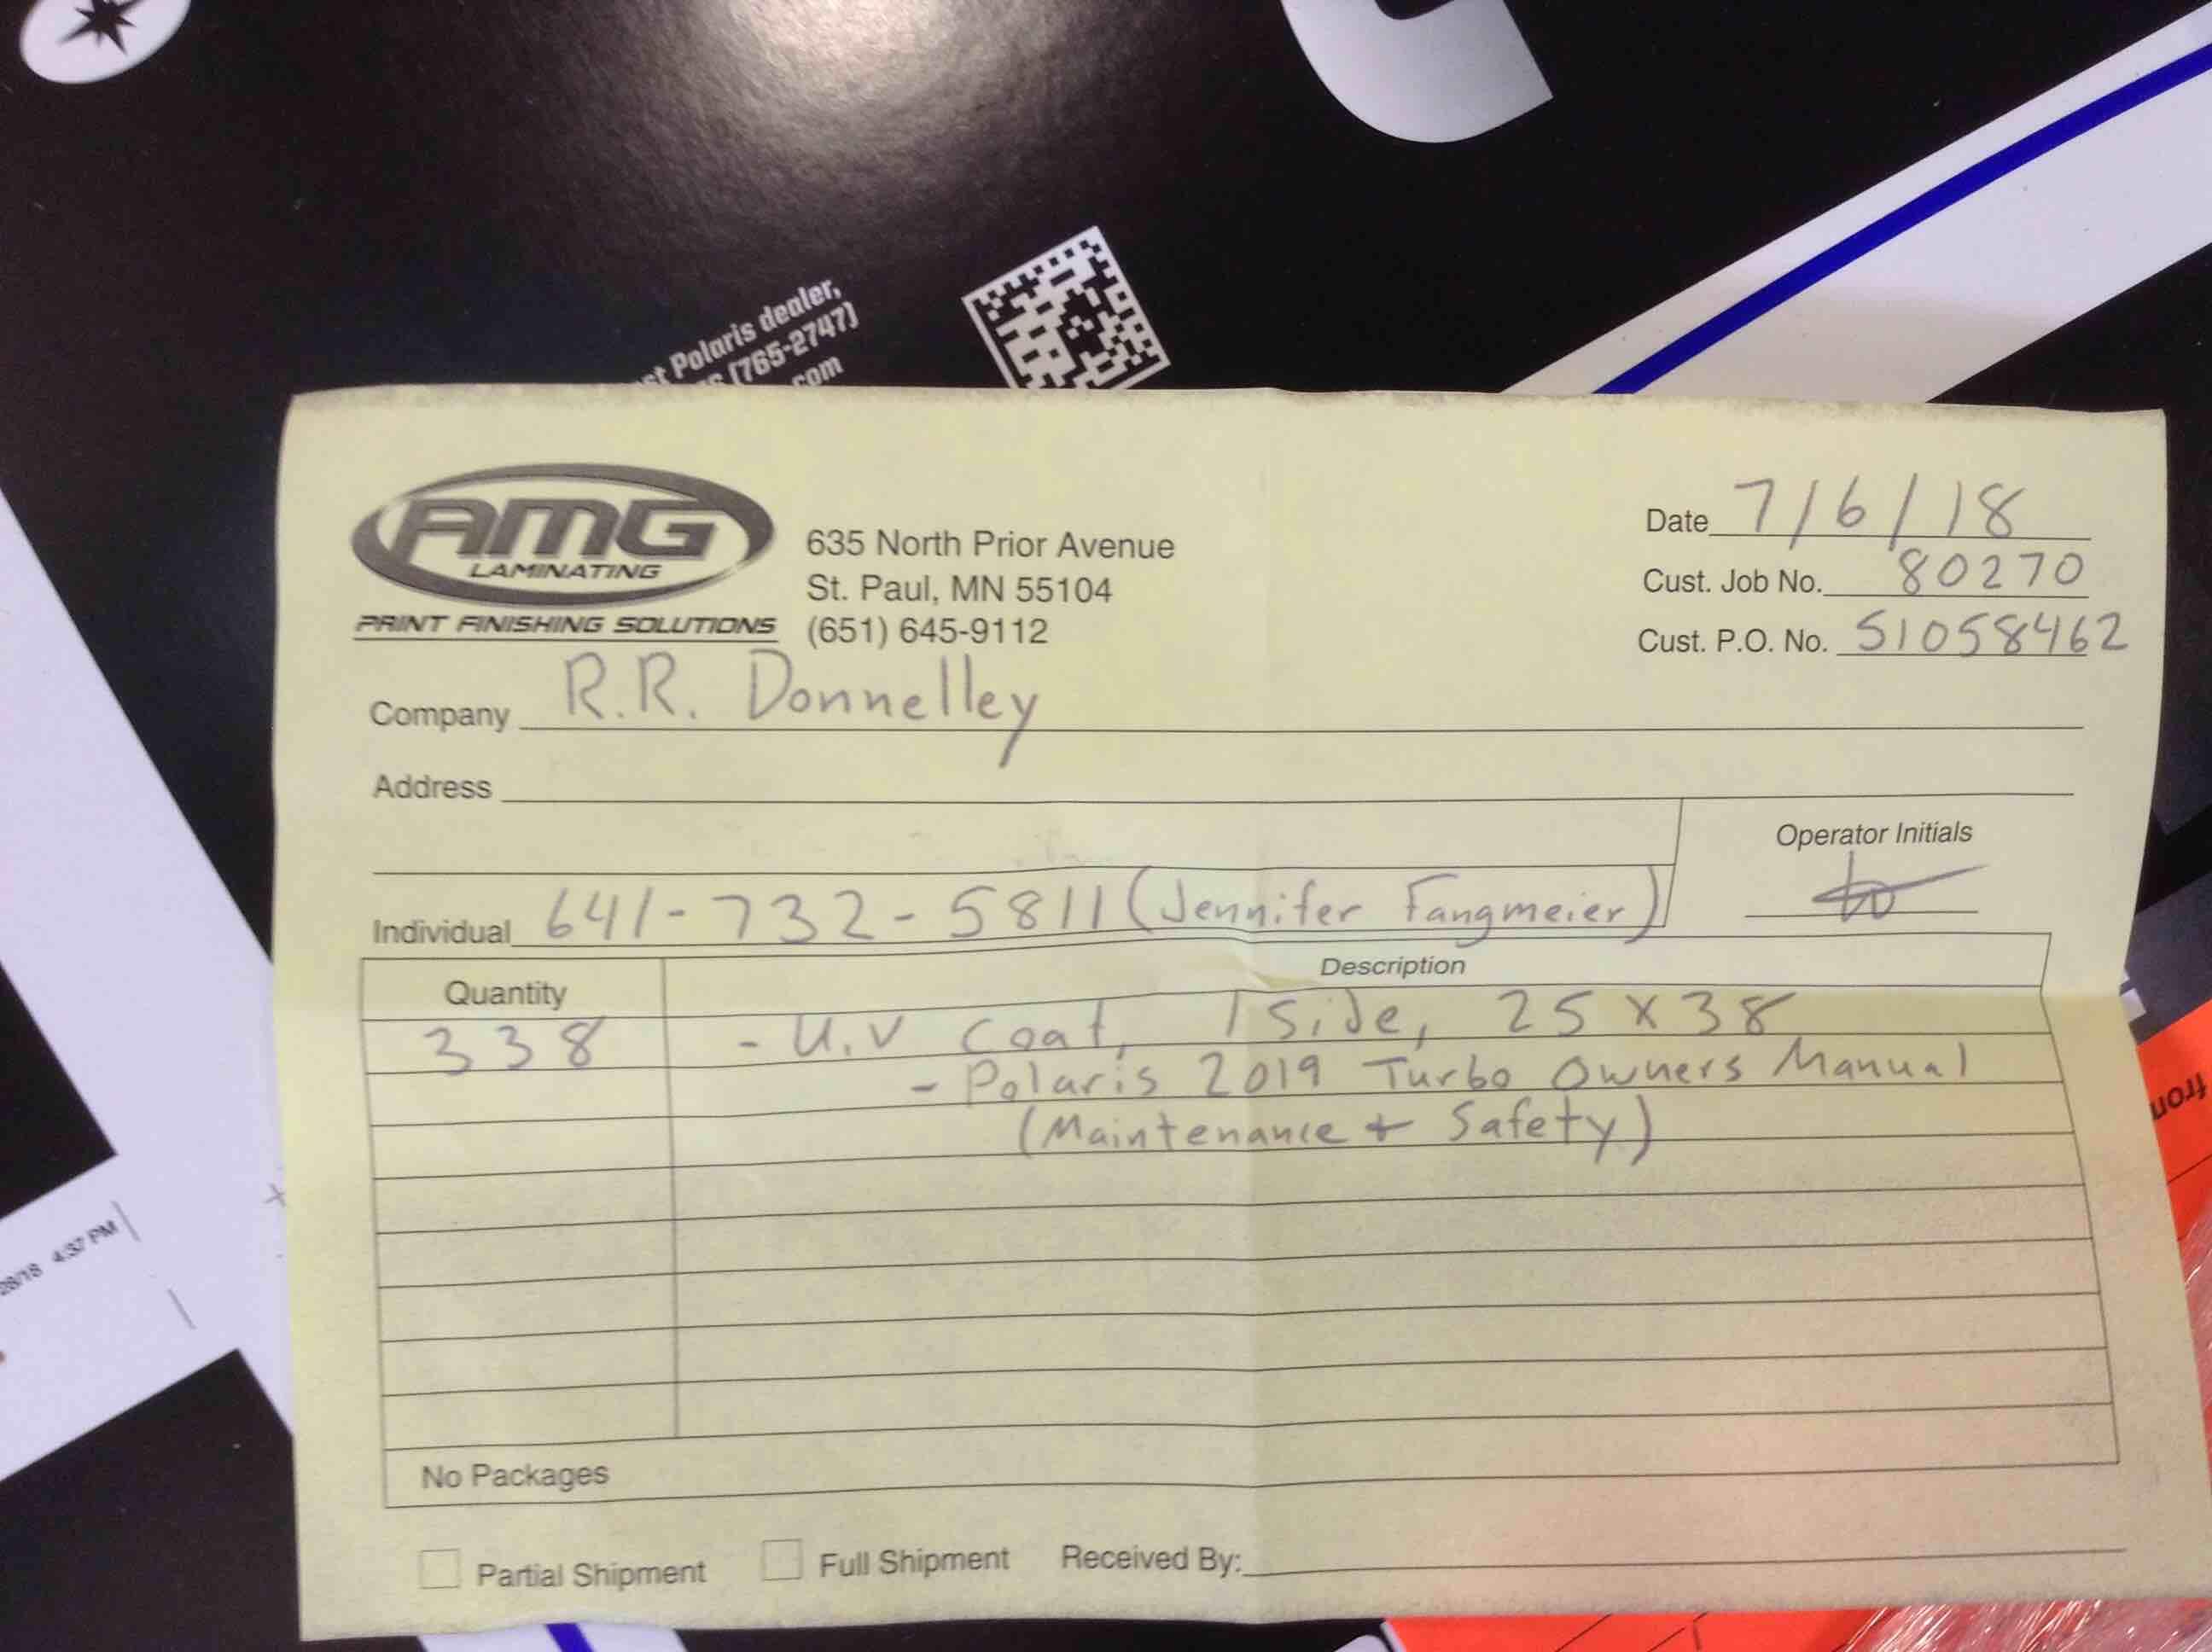 st Polaris dealer,
(765-2747)
.com
AMG
LAMINATING
PRINT FINISHING SOLUTIONS
635 North Prior Avenue
St. Paul, MN 55104
(651) 645-9112
Date 7/6/18
Cust. Job No. 80270
Cust. P.O. No. 51058462
Company R.R. Donnelley
Address
Operator Initials
Individual 641-732-5811 (Jennifer Fangmeier)
Quantity Description
338 - U.V coat, 1 Side, 25 x 38
- Polaris 2019 Turbo Owners Manual
(Maintenance + Safety)
No Packages
Partial Shipment Full Shipment Received By:
from
28/18 4:37 PM